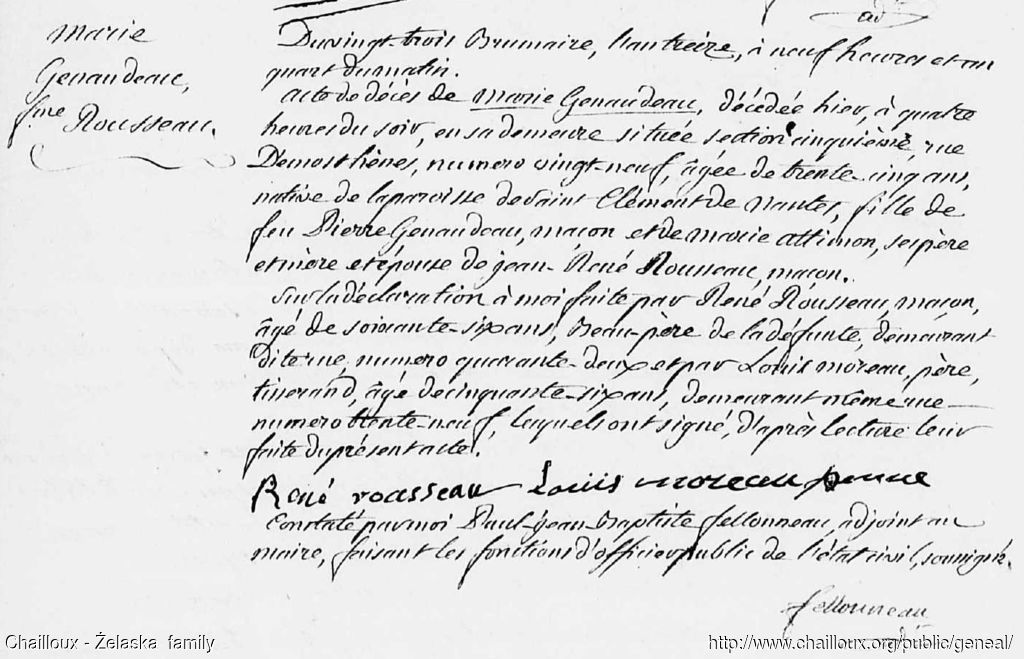 Marie
Genaudeau,
fme Rousseau.
Du vingt-trois Brumaire, l'an treize, à neuf heures et un
quart du matin.
Acte de décès de Marie Genaudeau, décédée hier, à quatre
heures du soir, en sa demeure située section cinquième, rue
Démosthènes, numero vingt-neuf, âgée de trente-cinq ans,
native de la paroisse de Saint Clément de Nantes, fille de
feu Pierre Genaudeau, maçon et de Marie Attimon, ses père
et mère et épouse de jean-René Rousseau, maçon.
Sur la déclaration à moi faite par René Rousseau, maçon,
âgé de soixante-six ans, Beau-père de la défunte, demeurant
dite rue, numero quarante-deux et par Louis Moreau, père,
tisserand, âgé de cinquante-six ans, demeurant même rue
numero trente-neuf, lesquels ont signé, d'après lecture leur
faite du présent acte.
René rousseau Louis moreau
Constaté par moi Paul-jean-Baptiste fellonneau, adjoint au
maire, faisant les fonctions d'officier public de l'état civil, soussigné.
fellonneau
Chailloux - Żelaska family
http://www.chailloux.org/public/geneal/